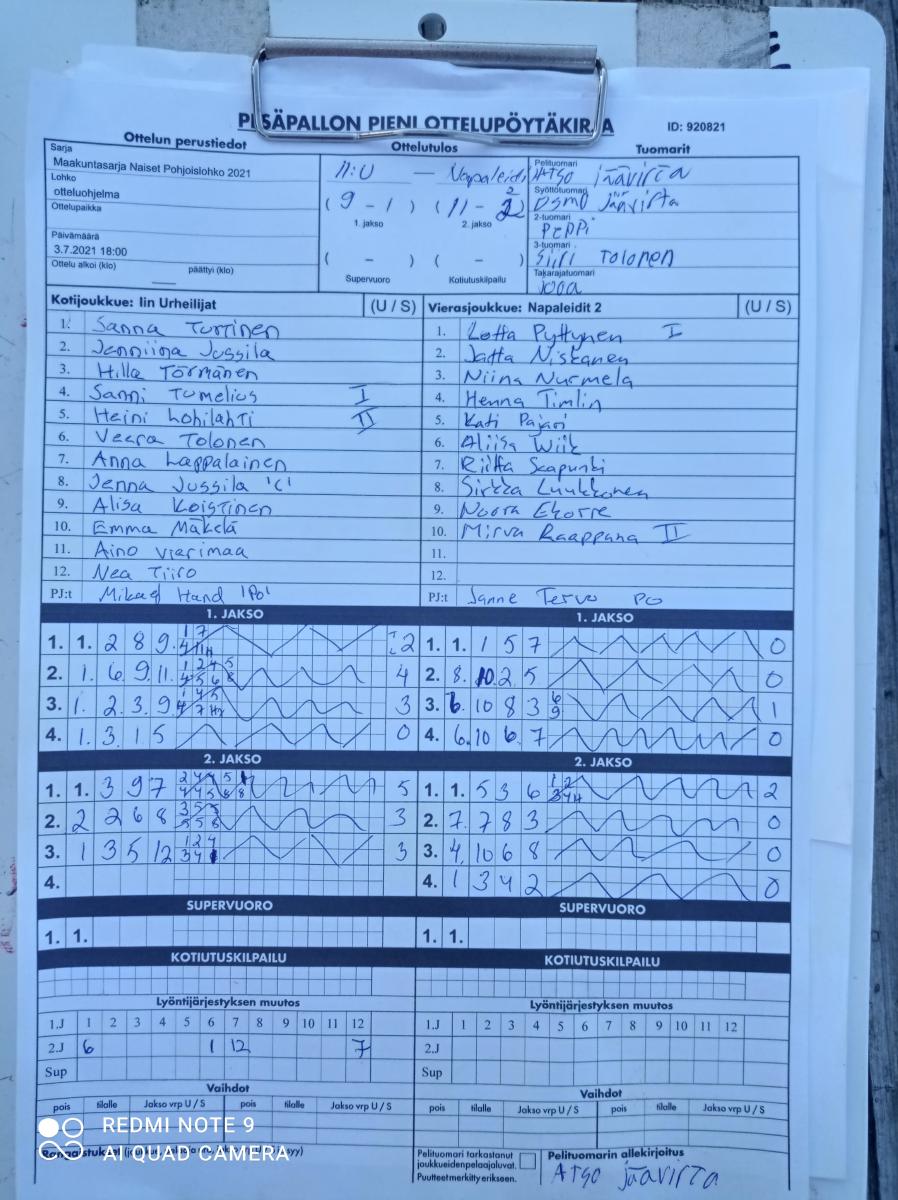 PESÄPALLON PIENI OTTELUPÖYTÄKIRJA
ID: 920821
Ottelun perustiedot
Ottelutulos
Tuomarit
Sarja
Maakuntasarja Naiset Pohjoislohko 2021
Lohko
otteluohjelma
Ottelupaikka
Päivämäärä
3.7.2021 18:00
Ottelu alkoi (klo) päättyi (klo)
II:U — Napaleidit
(9 - 1) (11 - 2)
1. jakso 2. jakso
( - ) ( - )
Supervuoro Kotiutuskilpailu
Pelituomari
Atso Jäävirta
Syöttötuomari
Osmo Jäävirta
2-tuomari
PEPPI
3-tuomari
Siiri Tolonen
Takarajatuomari
Jooa
Kotijoukkue: Iin Urheilijat (U / S)
1. Sanna Turtinen
2. Jenniina Jussila
3. Hilla Törmänen
4. Sanni Tumelius I
5. Heini Lohilahti II
6. Veera Tolonen
7. Anna Lappalainen
8. Jenna Jussila 'C'
9. Alisa Koistinen
10. Emma Mäkelä
11. Aino Vierimaa
12. Nea Tiiro
PJ:t Mikael Hand 'PO'
Vierasjoukkue: Napaleidit 2 (U / S)
1. Lotta Pyttynen I
2. Jatta Niskanen
3. Niina Nurmela
4. Henna Timlin
5. Kati Pajari
6. Aliisa Wiik
7. Riitta Saapunki
8. Sirkka Luukkonen
9. Noora Ekorre
10. Mirva Raappana II
11.
12.
PJ:t Sanne Tervo PO
1. JAKSO
1. 1. 2 8 9 2
2. 1. 6. 9. 11. 4
3. 1. 2. 3. 9 3
4. 1. 3. 1. 5 0
1. JAKSO
1. 1. 1 5 7 0
2. 8. 10 2 5 0
3. 6. 10 8 3 6 9 1
4. 6. 10 6 7 0
2. JAKSO
1. 1. 3 9 7 5
2. 2 2 6 8 3
3. 1 3 5 12 3
4.
2. JAKSO
1. 1. 5 3 6 2
2. 7. 7 8 3 0
3. 4, 10 6 8 0
4. 1 3 4 2 0
SUPERVUORO
1. 1.
SUPERVUORO
1. 1.
KOTIUTUSKILPAILU
KOTIUTUSKILPAILU
Lyöntijärjestyksen muutos
1.J 1 2 3 4 5 6 7 8 9 10 11 12
2.J 6 1 12 7
Sup
Lyöntijärjestyksen muutos
1.J 1 2 3 4 5 6 7 8 9 10 11 12
2.J
Sup
Vaihdot
pois tilalle Jakso vrp U / S pois tilalle Jakso vrp U / S
Vaihdot
pois tilalle Jakso vrp U / S pois tilalle Jakso vrp U / S
Pelituomari tarkastanut
joukkueiden pelaajaluvat.
Puutteet merkitty erikseen.
Pelituomarin allekirjoitus
Atso Jäävirta
REDMI NOTE 9
AI QUAD CAMERA